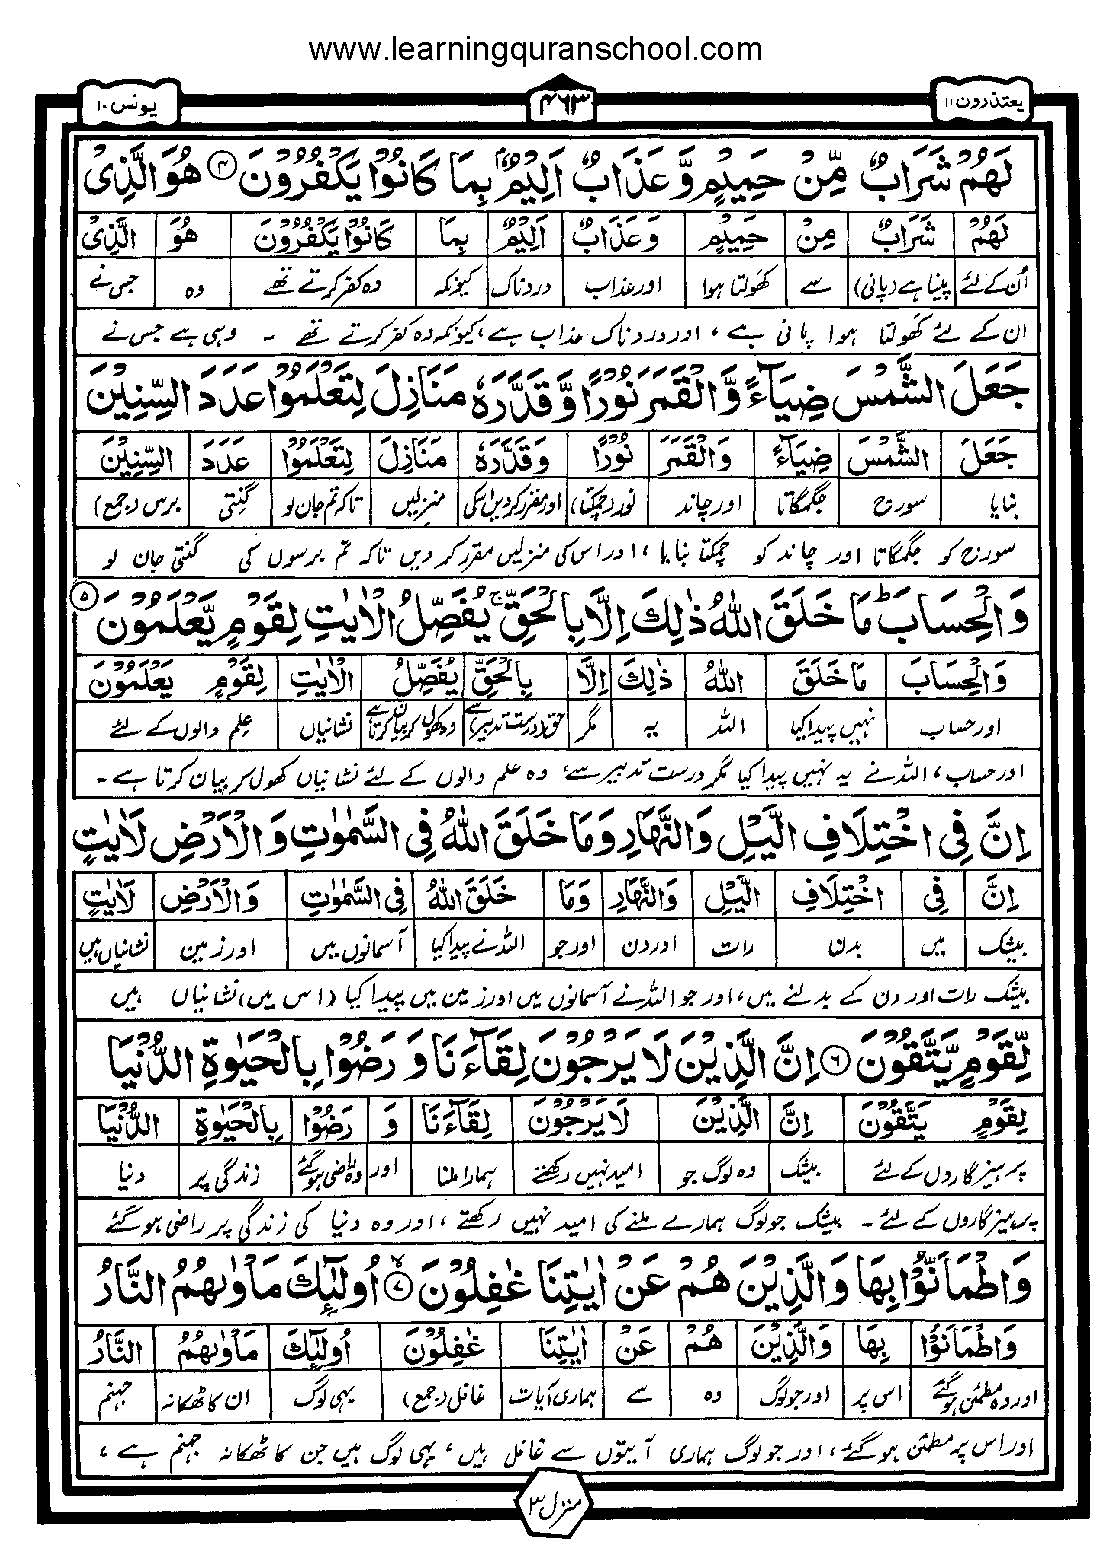 www.learningquranschool.com
یعتذرون ۱۱ ۴۶۳ یونس ۱۰
لَهُمْ شَرَابٌ مِّنْ حَمِيْمٍ وَّعَذَابٌ اَلِيْمٌۢ بِمَا كَانُوْا يَكْفُرُوْنَ ۴ هُوَ الَّذِىْ
لَهُمْ شَرَابٌ مِنْ حَمِيْمٍ وَعَذَابٌ اَلِيْمٌ بِمَا كَانُوْا يَكْفُرُوْنَ هُوَ الَّذِىْ
اُن کے لئے پینا ہے (پانی) سے کھَولتا ہوا اور عذاب دردناک کیونکہ وہ کفر کرتے تھے وہ جس نے
ان کے لئے کھَولتا ہوا پانی ہے، اور دردناک عذاب ہے، کیونکہ وہ کفر کرتے تھے ۔ وہی ہے جس نے
جَعَلَ الشَّمْسَ ضِيَآءً وَّالْقَمَرَ نُوْرًا وَّقَدَّرَهٗ مَنَازِلَ لِتَعْلَمُوْا عَدَدَ السِّنِيْنَ
جَعَلَ الشَّمْسَ ضِيَآءً وَالْقَمَرَ نُوْرًا وَقَدَّرَهٗ مَنَازِلَ لِتَعْلَمُوْا عَدَدَ السِّنِيْنَ
بنایا سورج جگمگاتا اور چاند نور (چمکتا) اور مقرر کردیں اسکی منزلیں تاکہ تم جان لو گنتی برس (جمع)
سورج کو جگمگاتا اور چاند کو چمکتا بنایا، اور اس کی منزلیں مقرر کر دیں تاکہ تم برسوں کی گنتی جان لو
وَالْحِسَابَ ؕ مَا خَلَقَ اللّٰهُ ذٰلِكَ اِلَّا بِالْحَقِّ ۚ يُفَصِّلُ الْاٰيٰتِ لِقَوْمٍ يَّعْلَمُوْنَ ۵
وَالْحِسَابَ مَا خَلَقَ اللّٰهُ ذٰلِكَ اِلَّا بِالْحَقِّ يُفَصِّلُ الْاٰيٰتِ لِقَوْمٍ يَعْلَمُوْنَ
اور حساب نہیں پیدا کیا اللہ یہ مگر حق (درست تدبیر) سے وہ کھول کر بیان کرتا ہے نشانیاں علم والوں کے لئے
اور حساب، اللہ نے یہ نہیں پیدا کیا مگر درست تدبیر سے، وہ علم والوں کے لئے نشانیاں کھول کر بیان کرتا ہے ۔
اِنَّ فِى اخْتِلَافِ الَّيْلِ وَالنَّهَارِ وَمَا خَلَقَ اللّٰهُ فِى السَّمٰوٰتِ وَالْاَرْضِ لَاٰيٰتٍ
اِنَّ فِى اخْتِلَافِ الَّيْلِ وَالنَّهَارِ وَمَا خَلَقَ اللّٰهُ فِى السَّمٰوٰتِ وَالْاَرْضِ لَاٰيٰتٍ
بیشک میں بدلنا رات اور دن اور جو اللہ نے پیدا کیا آسمانوں میں اور زمین نشانیاں ہیں
بیشک رات اور دن کے بدلنے میں، اور جو اللہ نے آسمانوں میں اور زمین میں پیدا کیا (اس میں) نشانیاں ہیں
لِّقَوْمٍ يَّتَّقُوْنَ ۶ اِنَّ الَّذِيْنَ لَا يَرْجُوْنَ لِقَآءَنَا وَرَضُوْا بِالْحَيٰوةِ الدُّنْيَا
لِقَوْمٍ يَتَّقُوْنَ اِنَّ الَّذِيْنَ لَا يَرْجُوْنَ لِقَآءَنَا وَ رَضُوْا بِالْحَيٰوةِ الدُّنْيَا
پرہیزگاروں کے لئے بیشک وہ لوگ جو امید نہیں رکھتے ہمارا ملنا اور وہ راضی ہو گئے زندگی پر دنیا
پرہیزگاروں کے لئے ۔ بیشک جو لوگ ہمارے ملنے کی امید نہیں رکھتے، اور وہ دنیا کی زندگی پر راضی ہو گئے
وَاطْمَاَنُّوْا بِهَا وَالَّذِيْنَ هُمْ عَنْ اٰيٰتِنَا غٰفِلُوْنَ ۷ اُولٰٓئِكَ مَاْوٰىهُمُ النَّارُ
وَاطْمَاَنُّوْا بِهَا وَالَّذِيْنَ هُمْ عَنْ اٰيٰتِنَا غٰفِلُوْنَ اُولٰٓئِكَ مَاْوٰىهُمُ النَّارُ
اور وہ مطمئن ہو گئے اس پر اور جو لوگ وہ سے ہماری آیات غافل (جمع) یہی لوگ ان کا ٹھکانہ جہنم
اور اس پر مطمئن ہو گئے، اور جو لوگ ہماری آیتوں سے غافل ہیں، یہی لوگ ہیں جن کا ٹھکانہ جہنم ہے،
منزل ۳